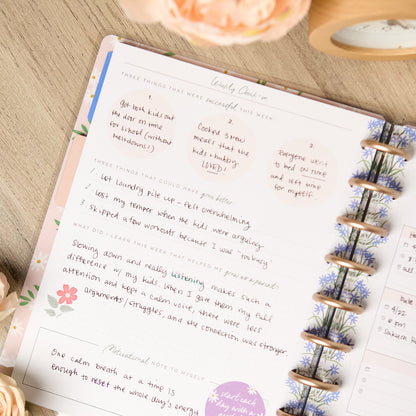 Weekly Check-in
THREE THINGS THAT WERE successful THIS WEEK
1.
Got both kids out
the door on time
for school (without
meltdowns!)
2.
Cooked 3 new
meals that the
kids + hubby
LOVED!
3.
Everyone went
to bed on time
and left time
for myself.
THREE THINGS THAT COULD HAVE gone better
1. Let laundry pile up - felt overwhelming
2 Lost my temper when the kids were arguing
3 Skipped a few workouts because I was "too busy"
WHAT DID I LEARN THIS WEEK THAT HELPED ME grow as a parent?
Slowing down and really listening makes such a
difference w/ my kids when I gave them my full
attention and kept a calm voice, there were less
arguments/struggles, and the connection was stronger.
Motivational NOTE TO MYSELF
One calm breath at a time is
enough to reset the whole day's energy
start each
day with a
4/22
6 pm